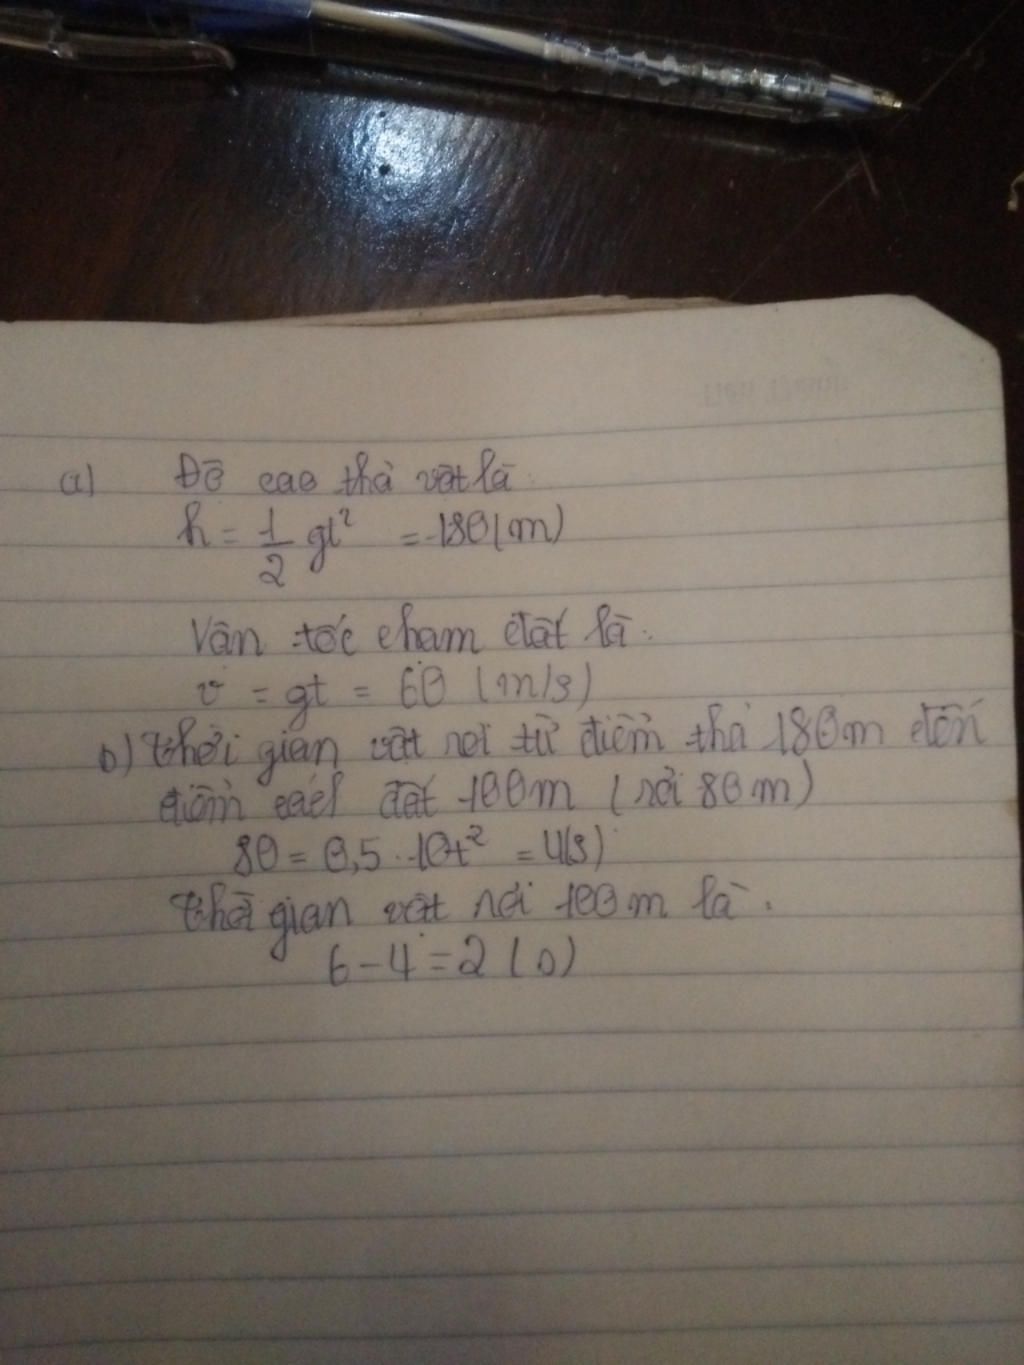 a) Độ cao thả vật là
h = 1/2 gt² = 180 (m)
Vận tốc chạm đất là.
v = gt = 60 (m/s)
b) Thời gian vật rơi từ điểm thả 180m đến
điểm cách đất 100m (rơi 80m)
80 = 0,5 . 10t² = 4(s)
Thời gian vật rơi 100m là.
6 - 4 = 2 (s)